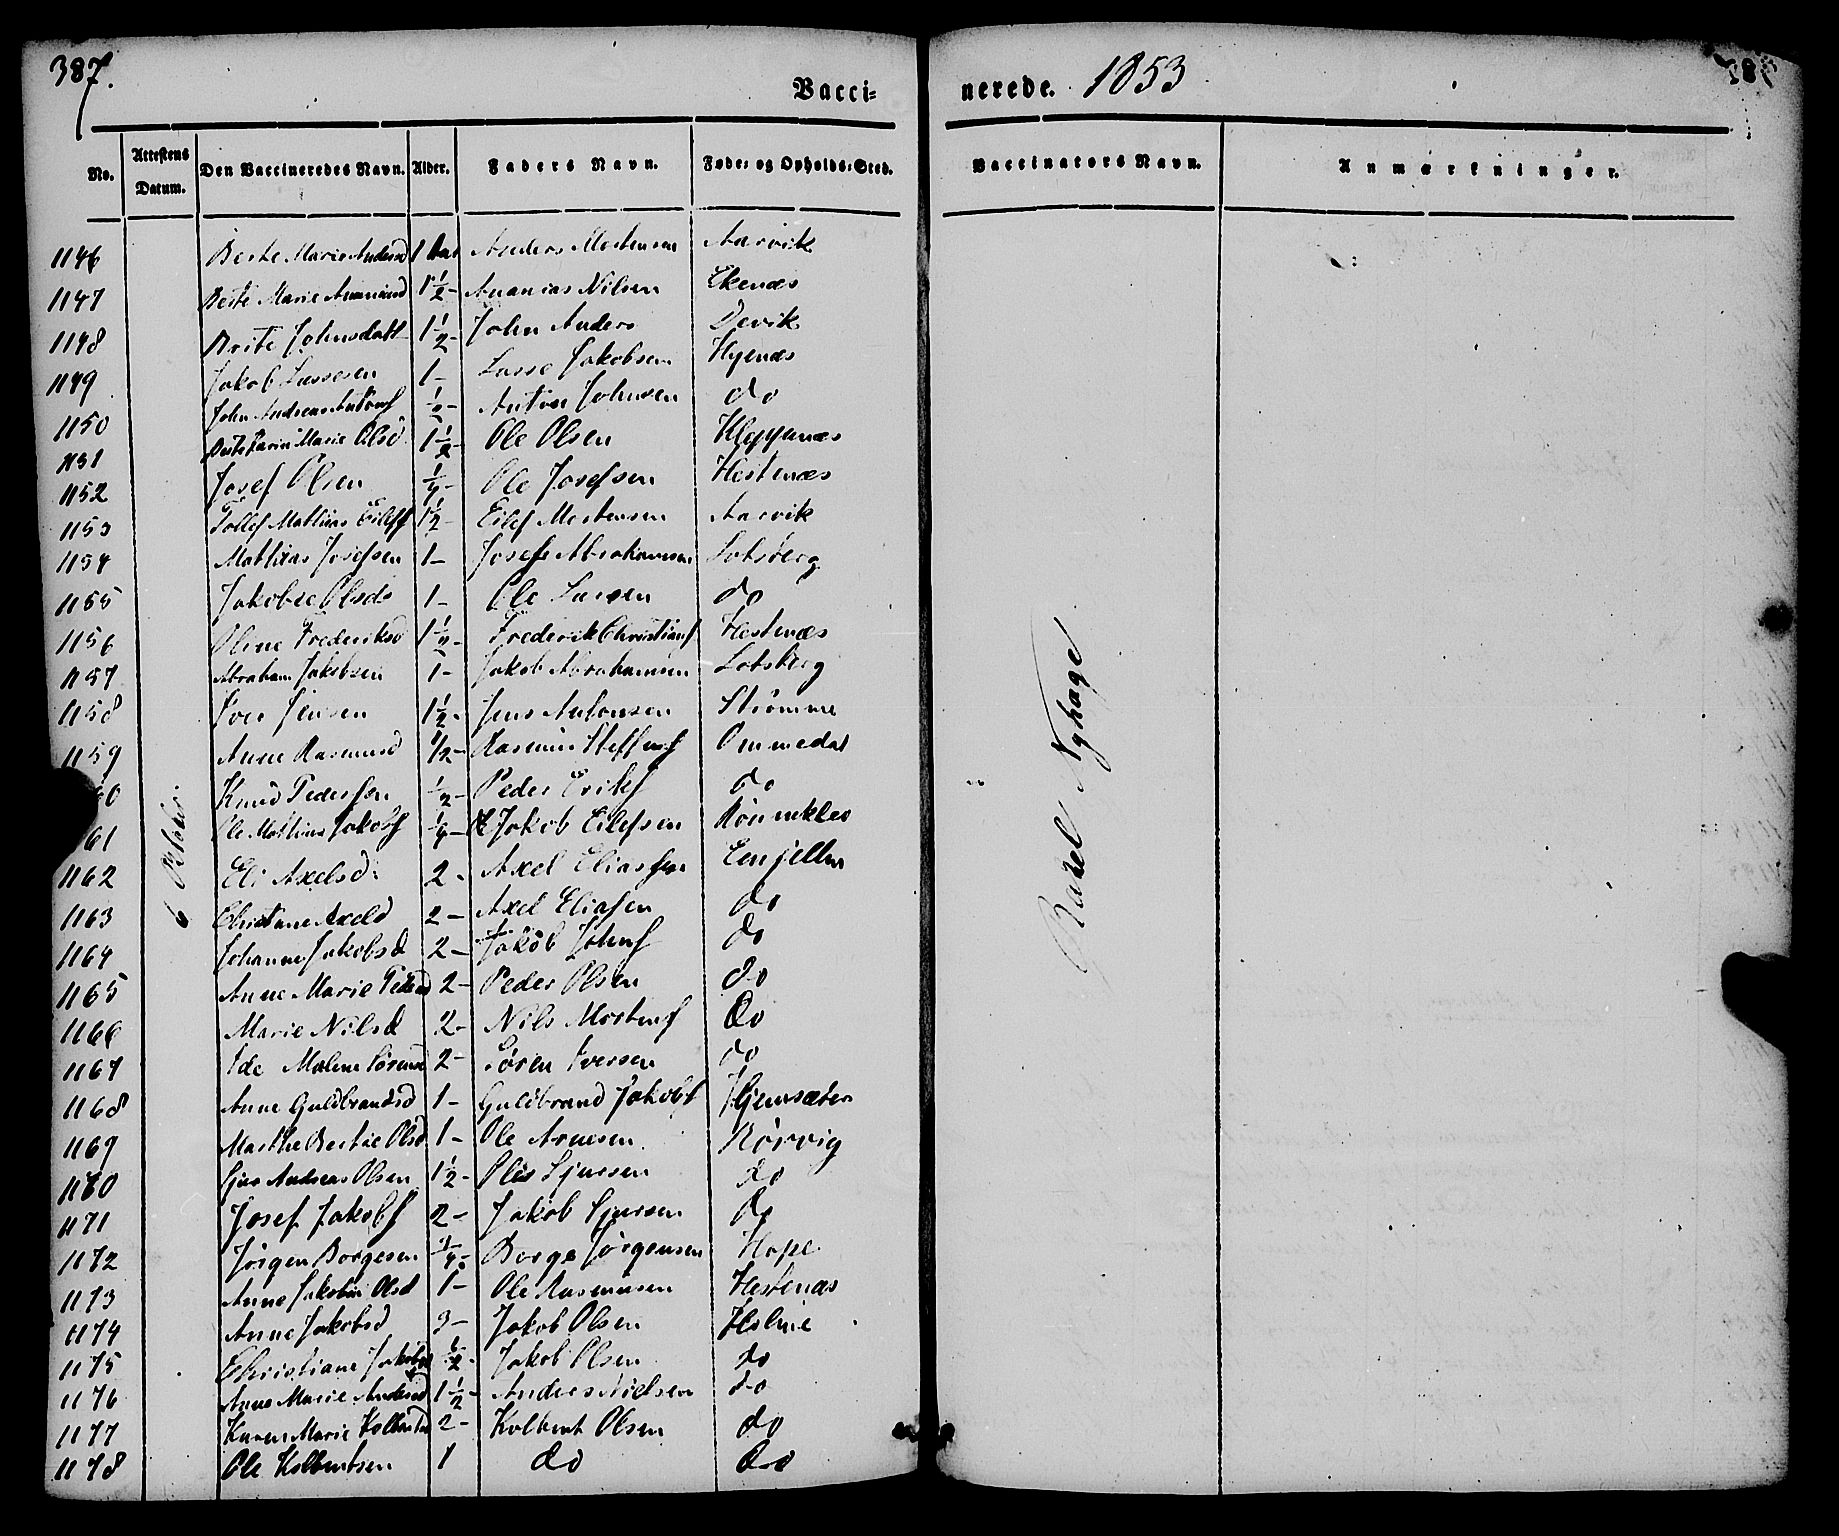 387.
Vaccinerede. 1853
387
No. Attestens Datum. Den Vaccineredes Navn. Alder. Faders Navn. Føde- og Opholds-Sted. Vaccinators Navn. Anmærkninger.
6 October
Rasel Nyhage
1146 Berte Marie Andersd 1 Aar Anders Mortensen Aarvik
1147 Berte Marie Ananiasd 1 1/2 - Ananias Nilsen Ekenæs
1148 Brite Johnsdatt 1 1/2 - John Anders Devik
1149 Jakob Lassesen 1 - Lasse Jakobsen Hyenæs
1150 John Andreas Antonsf 1/2 - Anton Johnsen do
1151 Berte Karin Marie Olsd 1 1/2 - Ole Olsen Kleppenæs
1152 Josef Olsen 1/4 - Ole Josefsen Hestenæs
1153 Tollef Mathias Eilefsf 1 1/2 - Eilef Mortensen Aarvik
1154 Mathias Josefsen 1 - Josef Abrahamsen Lotsberg
1155 Jakobee Olsd 1 - Ole Larsen do
1156 Oline Frederiksd 1 1/2 - Frederik Christiansf Hestenæs
1157 Abraham Jakobsen 1 - Jakob Abrahamsen Lotsberg
1158 Iver Jensen 1 1/2 - Jens Antonsen Strømme
1159 Anne Rasmusd 1/2 - Rasmus Steffensf Ommedal
60 Knud Pedersen 1/2 - Peder Eriksf do
61 Ole Mathias Jakobsf 1/4 - Jakob Eilefsen Rønneklev
1162 Eli Axelsd 2 - Axel Eliassen Eenjellen
1163 Christiane Axelsd 2 - Axel Eliasen do
1164 Johanne Jakobsd 2 - Jakob Johnsf do
1165 Anne Marie Pedersd 2 - Peder Olsen do
1166 Marie Nilsd 2 - Nils Mortensf do
1167 Ide Malene Sørensd 2 - Søren Iversen do
1168 Anne Guldbrandsd 1 - Guldbrand Jakobsf Hjemsæter
1169 Marthe Bertie Olsd 1 - Ole Arnesen Rørvig
1170 Sjur Andreas Olsen 1 1/2 - Ole Sjursen do
1171 Josef Jakobsf 2 - Jakob Sjursen do
1172 Jørgen Borgesen 1/4 - Borge Jørgensen Hope
1173 Anne Jakobine Olsd 1 - Ole Rasmusen Hestenæs
1174 Anne Jakobsd 3 - Jakob Olsen Holme
1175 Christiane Jakobsd 1/2 - Jakob Olsen do
1176 Anne Marie Andersd 1 1/2 - Anders Nielsen do
1177 Karen Marie Kolbentsd 2 - Kolbent Olsen do
1178 Ole Kolbentsen 1 do do